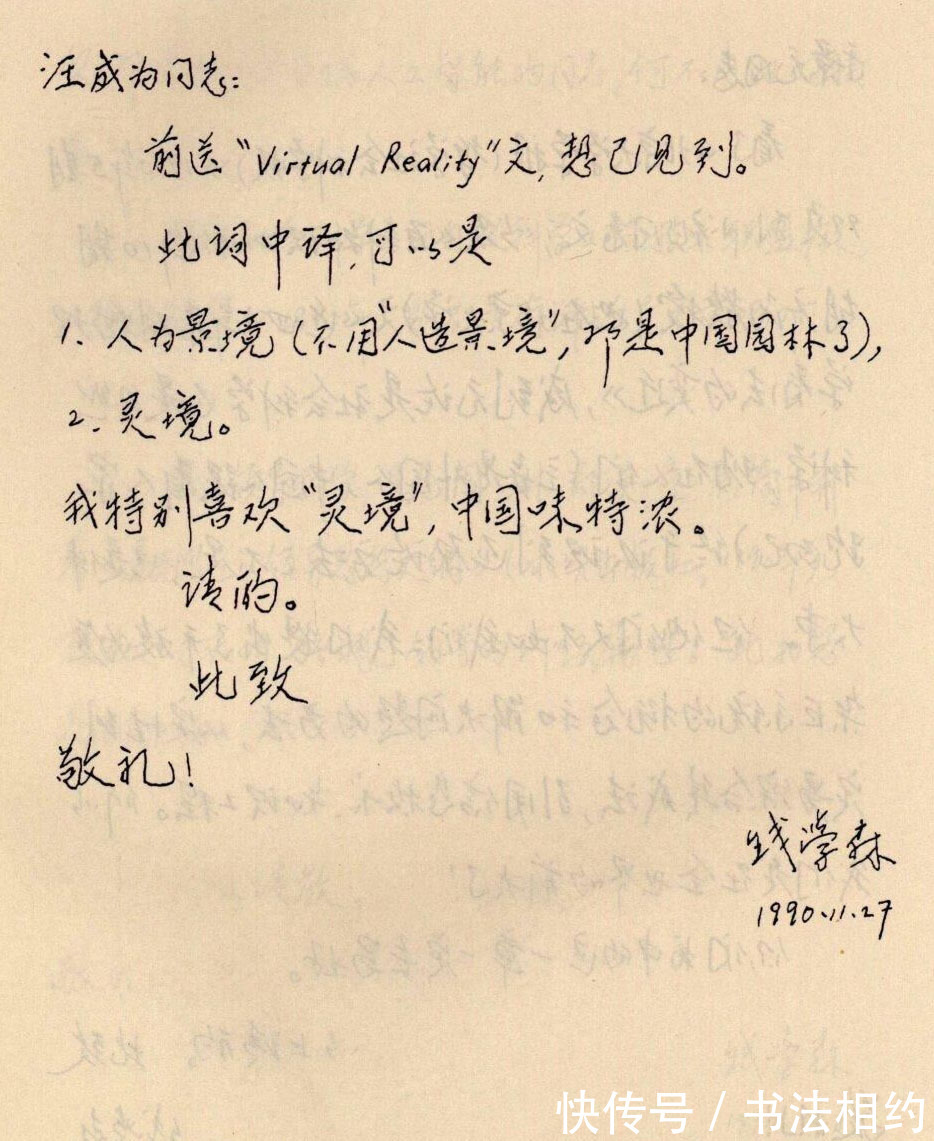 汪成为同志:
前送“Virtual Reality”文,想已见到。
此词中译,可以是
1. 人为景境(不用“人造景境”,那是中国园林了),
2. 灵境。
我特别喜欢“灵境”,中国味特浓。
请酌。
此致
敬礼!
钱学森
1990.11.27
快传号 / 书法相约